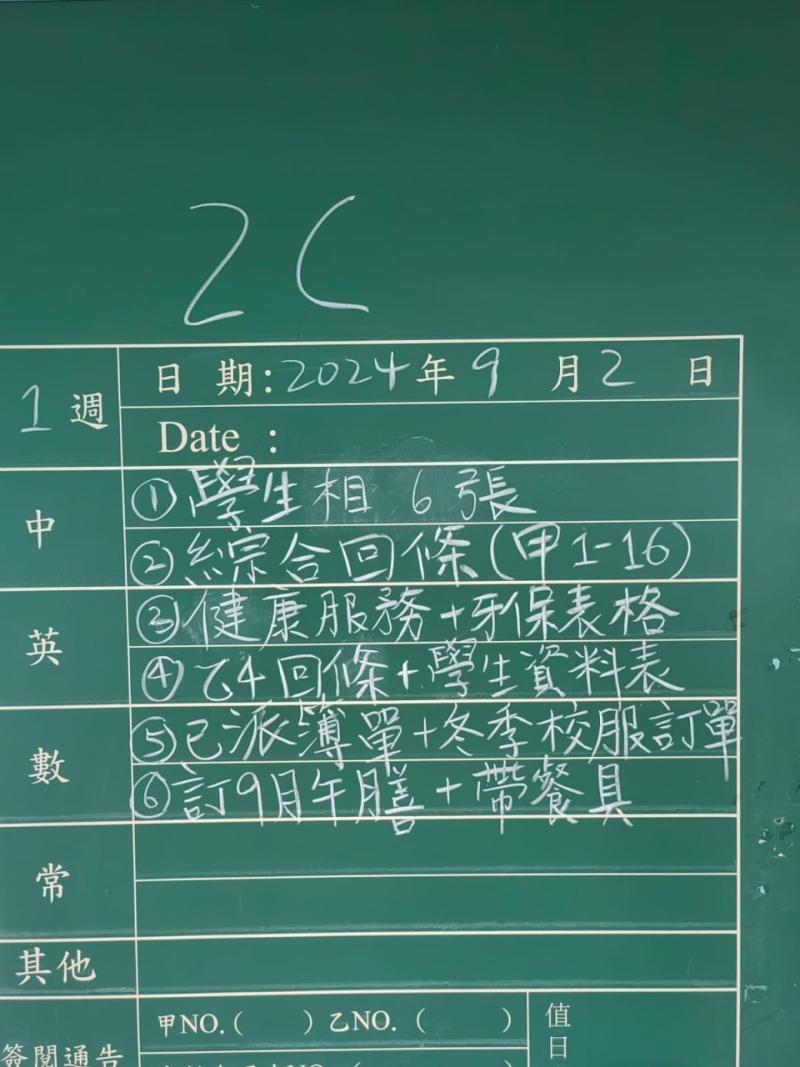 2C
1週
日期:2024年9月2日
Date :
中
①學生相 6張
②綜合回條(甲1-16)
英
③健康服務+牙保表格
④乙4回條+學生資料表
數
⑤已派簿單+冬季校服訂單
⑥訂9月午膳+帶餐具
常
其他
甲NO.( )乙NO.( )
值日
簽閱通告